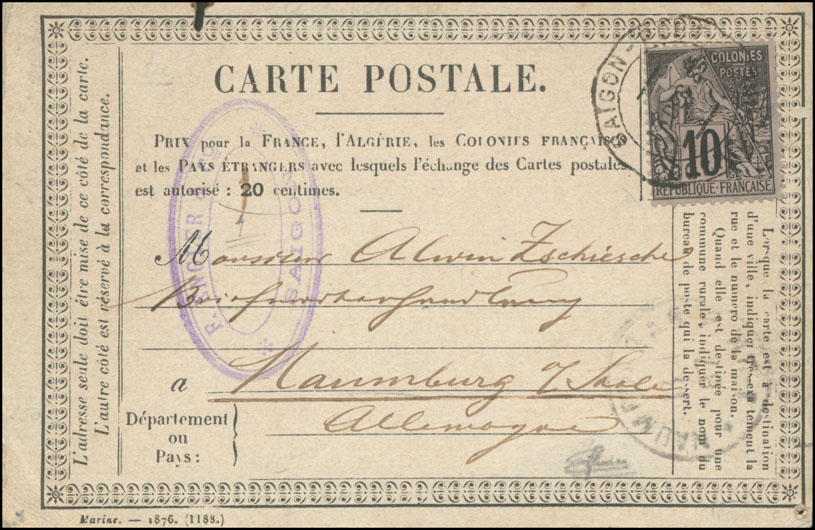 CARTE POSTALE.
PRIX pour la FRANCE, l'ALGÉRIE, les COLONIES FRANÇAISES
et les PAYS ÉTRANGERS avec lesquels l'échange des Cartes postales
est autorisé : 20 centimes.
COLONIES
POSTES
10
RÉPUBLIQUE FRANÇAISE
SAIGON
SAIGON
Monsieur Alwin Zschiesche
Briefmarkenhandlung
a Naumburg a/Saale
Allemagne
Département
ou
Pays :
L'adresse seule doit être mise de ce côté de la carte.
L'autre côté est réservé à la correspondance.
Lorsque la carte est à destination
d'une ville, indiquer très exactement la
rue et le numéro de la maison.
Quand elle est destinée pour une
commune rurale, indiquer le nom du
bureau de poste qui la dessert.
Marine. — 1876. (1188.)